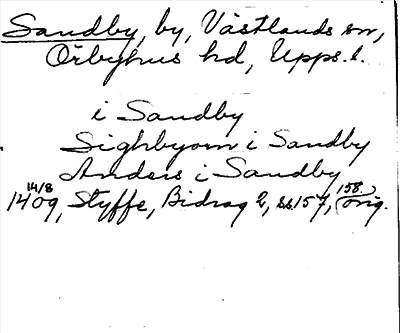 Sandby, by, Västlands sn,
Örbyhus hd, Upps. l.
i Sandby
Sighbyorn i Sandby
Anders i Sandby
14/8 1409, Styffe, Bidrag 2, ss 157, 158. orig.